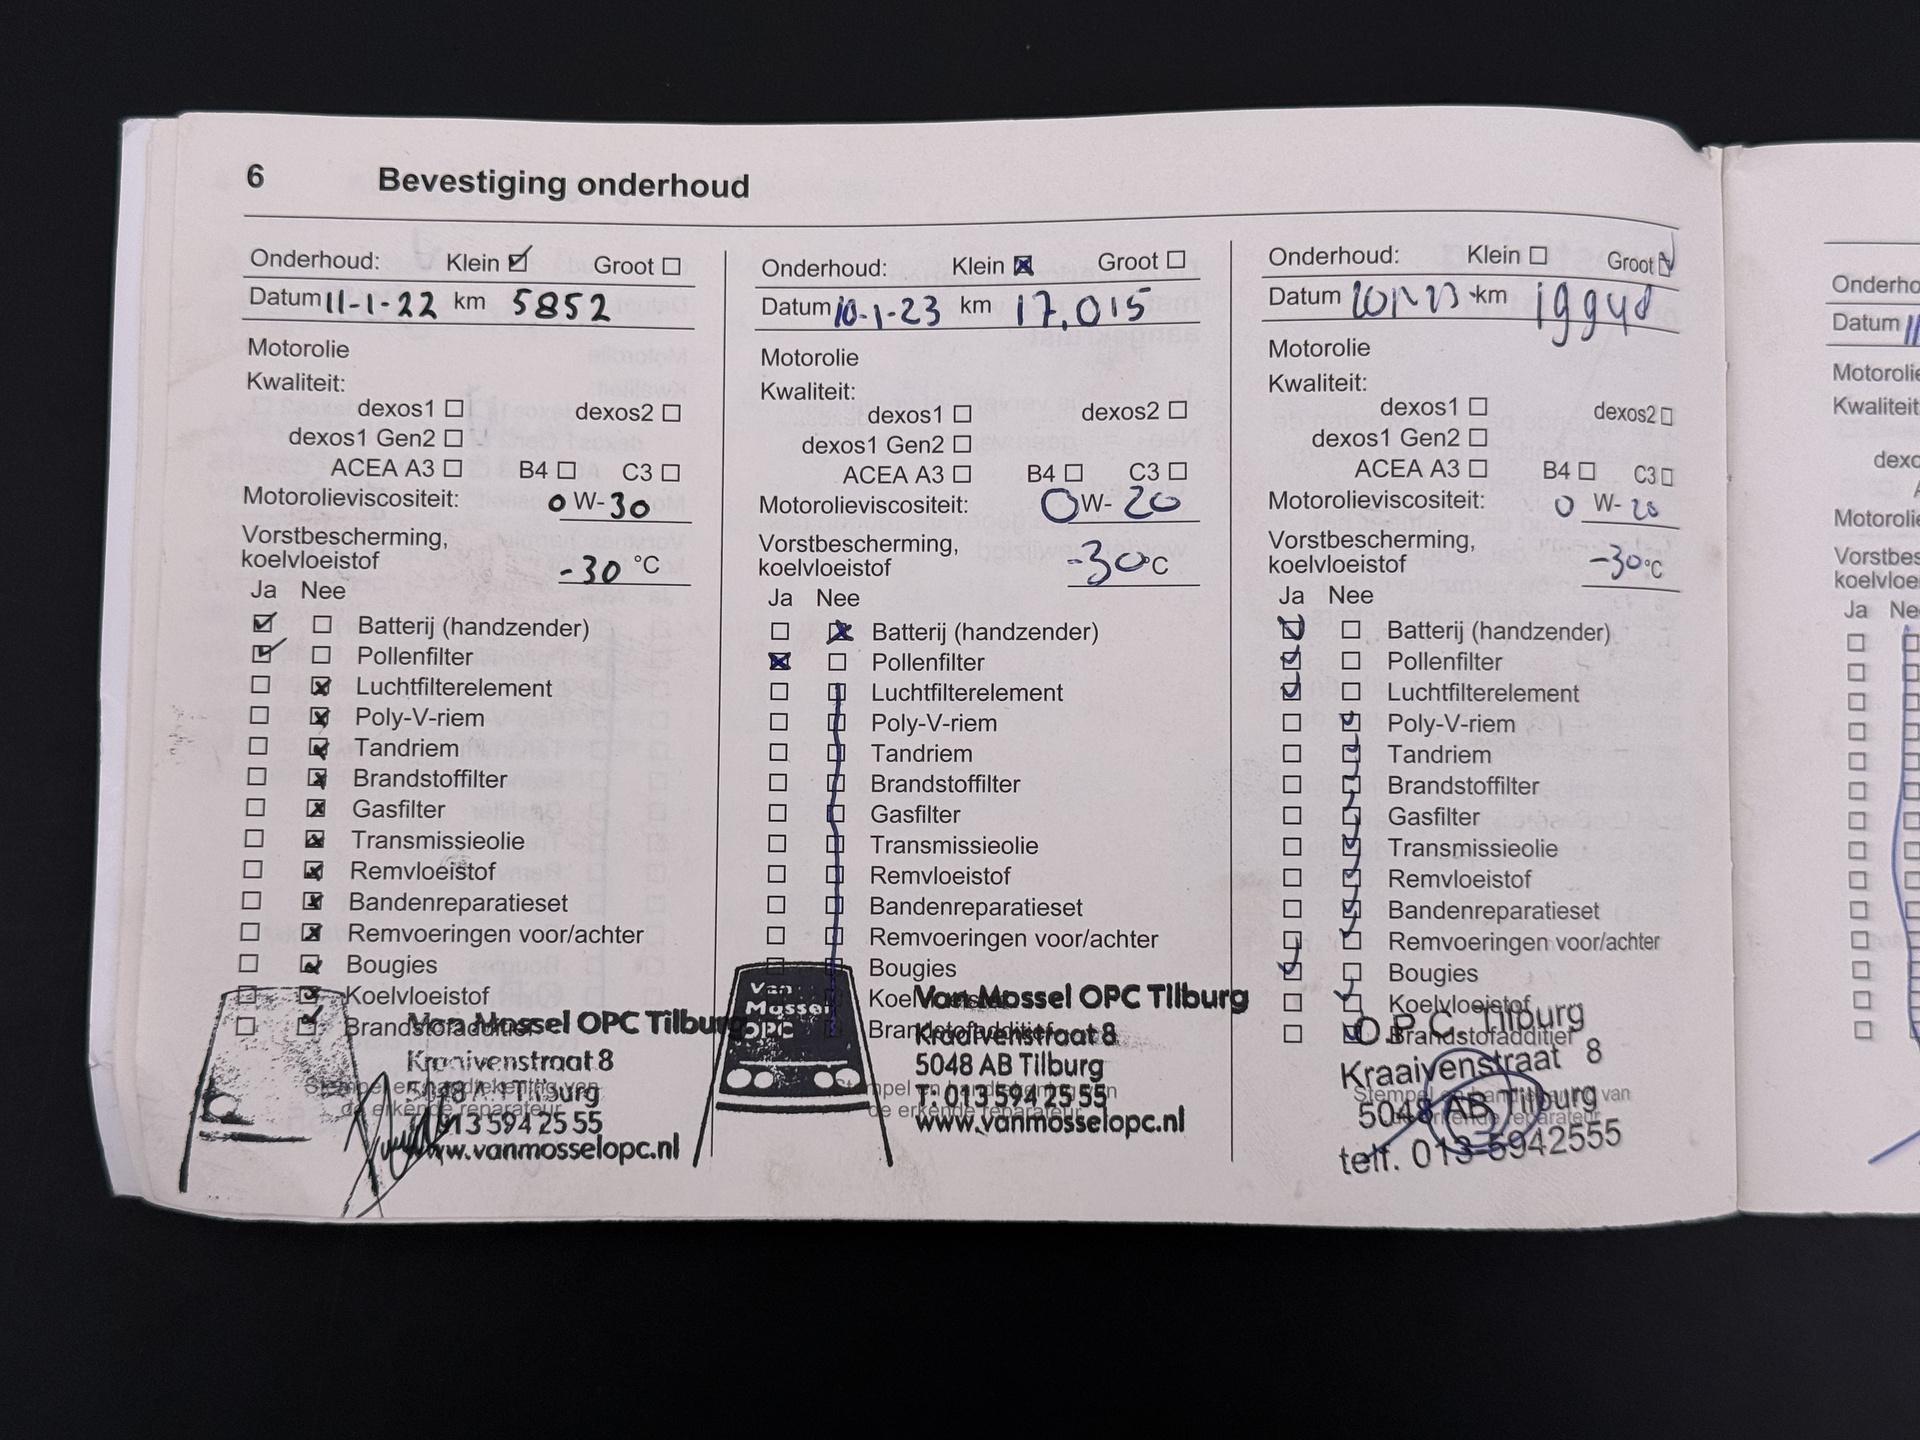 6 Bevestiging onderhoud
Onderhoud: Klein Groot
Datum 11-1-22 km 5852
Motorolie
Kwaliteit:
dexos1 dexos2
dexos1 Gen2
ACEA A3 B4 C3
Motorolieviscositeit: 0 W-30
Vorstbescherming,
koelvloeistof -30 °C
Ja Nee
Batterij (handzender)
Pollenfilter
Luchtfilterelement
Poly-V-riem
Tandriem
Brandstoffilter
Gasfilter
Transmissieolie
Remvloeistof
Bandenreparatieset
Remvoeringen voor/achter
Bougies
Koelvloeistof
Brandstofadditief
Van Mossel OPC Tilburg
Kraaivenstraat 8
Stempel en handtekening van
5048 AB Tilburg
de erkende reparateur
013 594 25 55
www.vanmosselopc.nl
Onderhoud: Klein Groot
Datum 10-1-23 km 17.015
Motorolie
Kwaliteit:
dexos1 dexos2
dexos1 Gen2
ACEA A3 B4 C3
Motorolieviscositeit: 0 W- 20
Vorstbescherming,
koelvloeistof -30 °C
Ja Nee
Batterij (handzender)
Pollenfilter
Luchtfilterelement
Poly-V-riem
Tandriem
Brandstoffilter
Gasfilter
Transmissieolie
Remvloeistof
Bandenreparatieset
Remvoeringen voor/achter
Bougies
Koelvloeistof
Brandstofadditief
Van Mossel OPC
Van Mossel OPC Tilburg
Kraaivenstraat 8
5048 AB Tilburg
Stempel en handtekening van
T: 013 594 25 55
de erkende reparateur
www.vanmosselopc.nl
Onderhoud: Klein Groot
Datum km
Motorolie
Kwaliteit:
dexos1 dexos2
dexos1 Gen2
ACEA A3 B4 C3
Motorolieviscositeit: 0 W- 20
Vorstbescherming,
koelvloeistof -30 °C
Ja Nee
Batterij (handzender)
Pollenfilter
Luchtfilterelement
Poly-V-riem
Tandriem
Brandstoffilter
Gasfilter
Transmissieolie
Remvloeistof
Bandenreparatieset
Remvoeringen voor/achter
Bougies
Koelvloeistof
Brandstofadditief
O.P.C. Tilburg
Kraaivenstraat 8
Stempel en handtekening van
5048 AB Tilburg
de erkende reparateur
telf. 013-5942555
Onderho
Datum
Motorolie
Kwaliteit
dexo
Motorolie
Vorstbes
koelvloei
Ja Nee